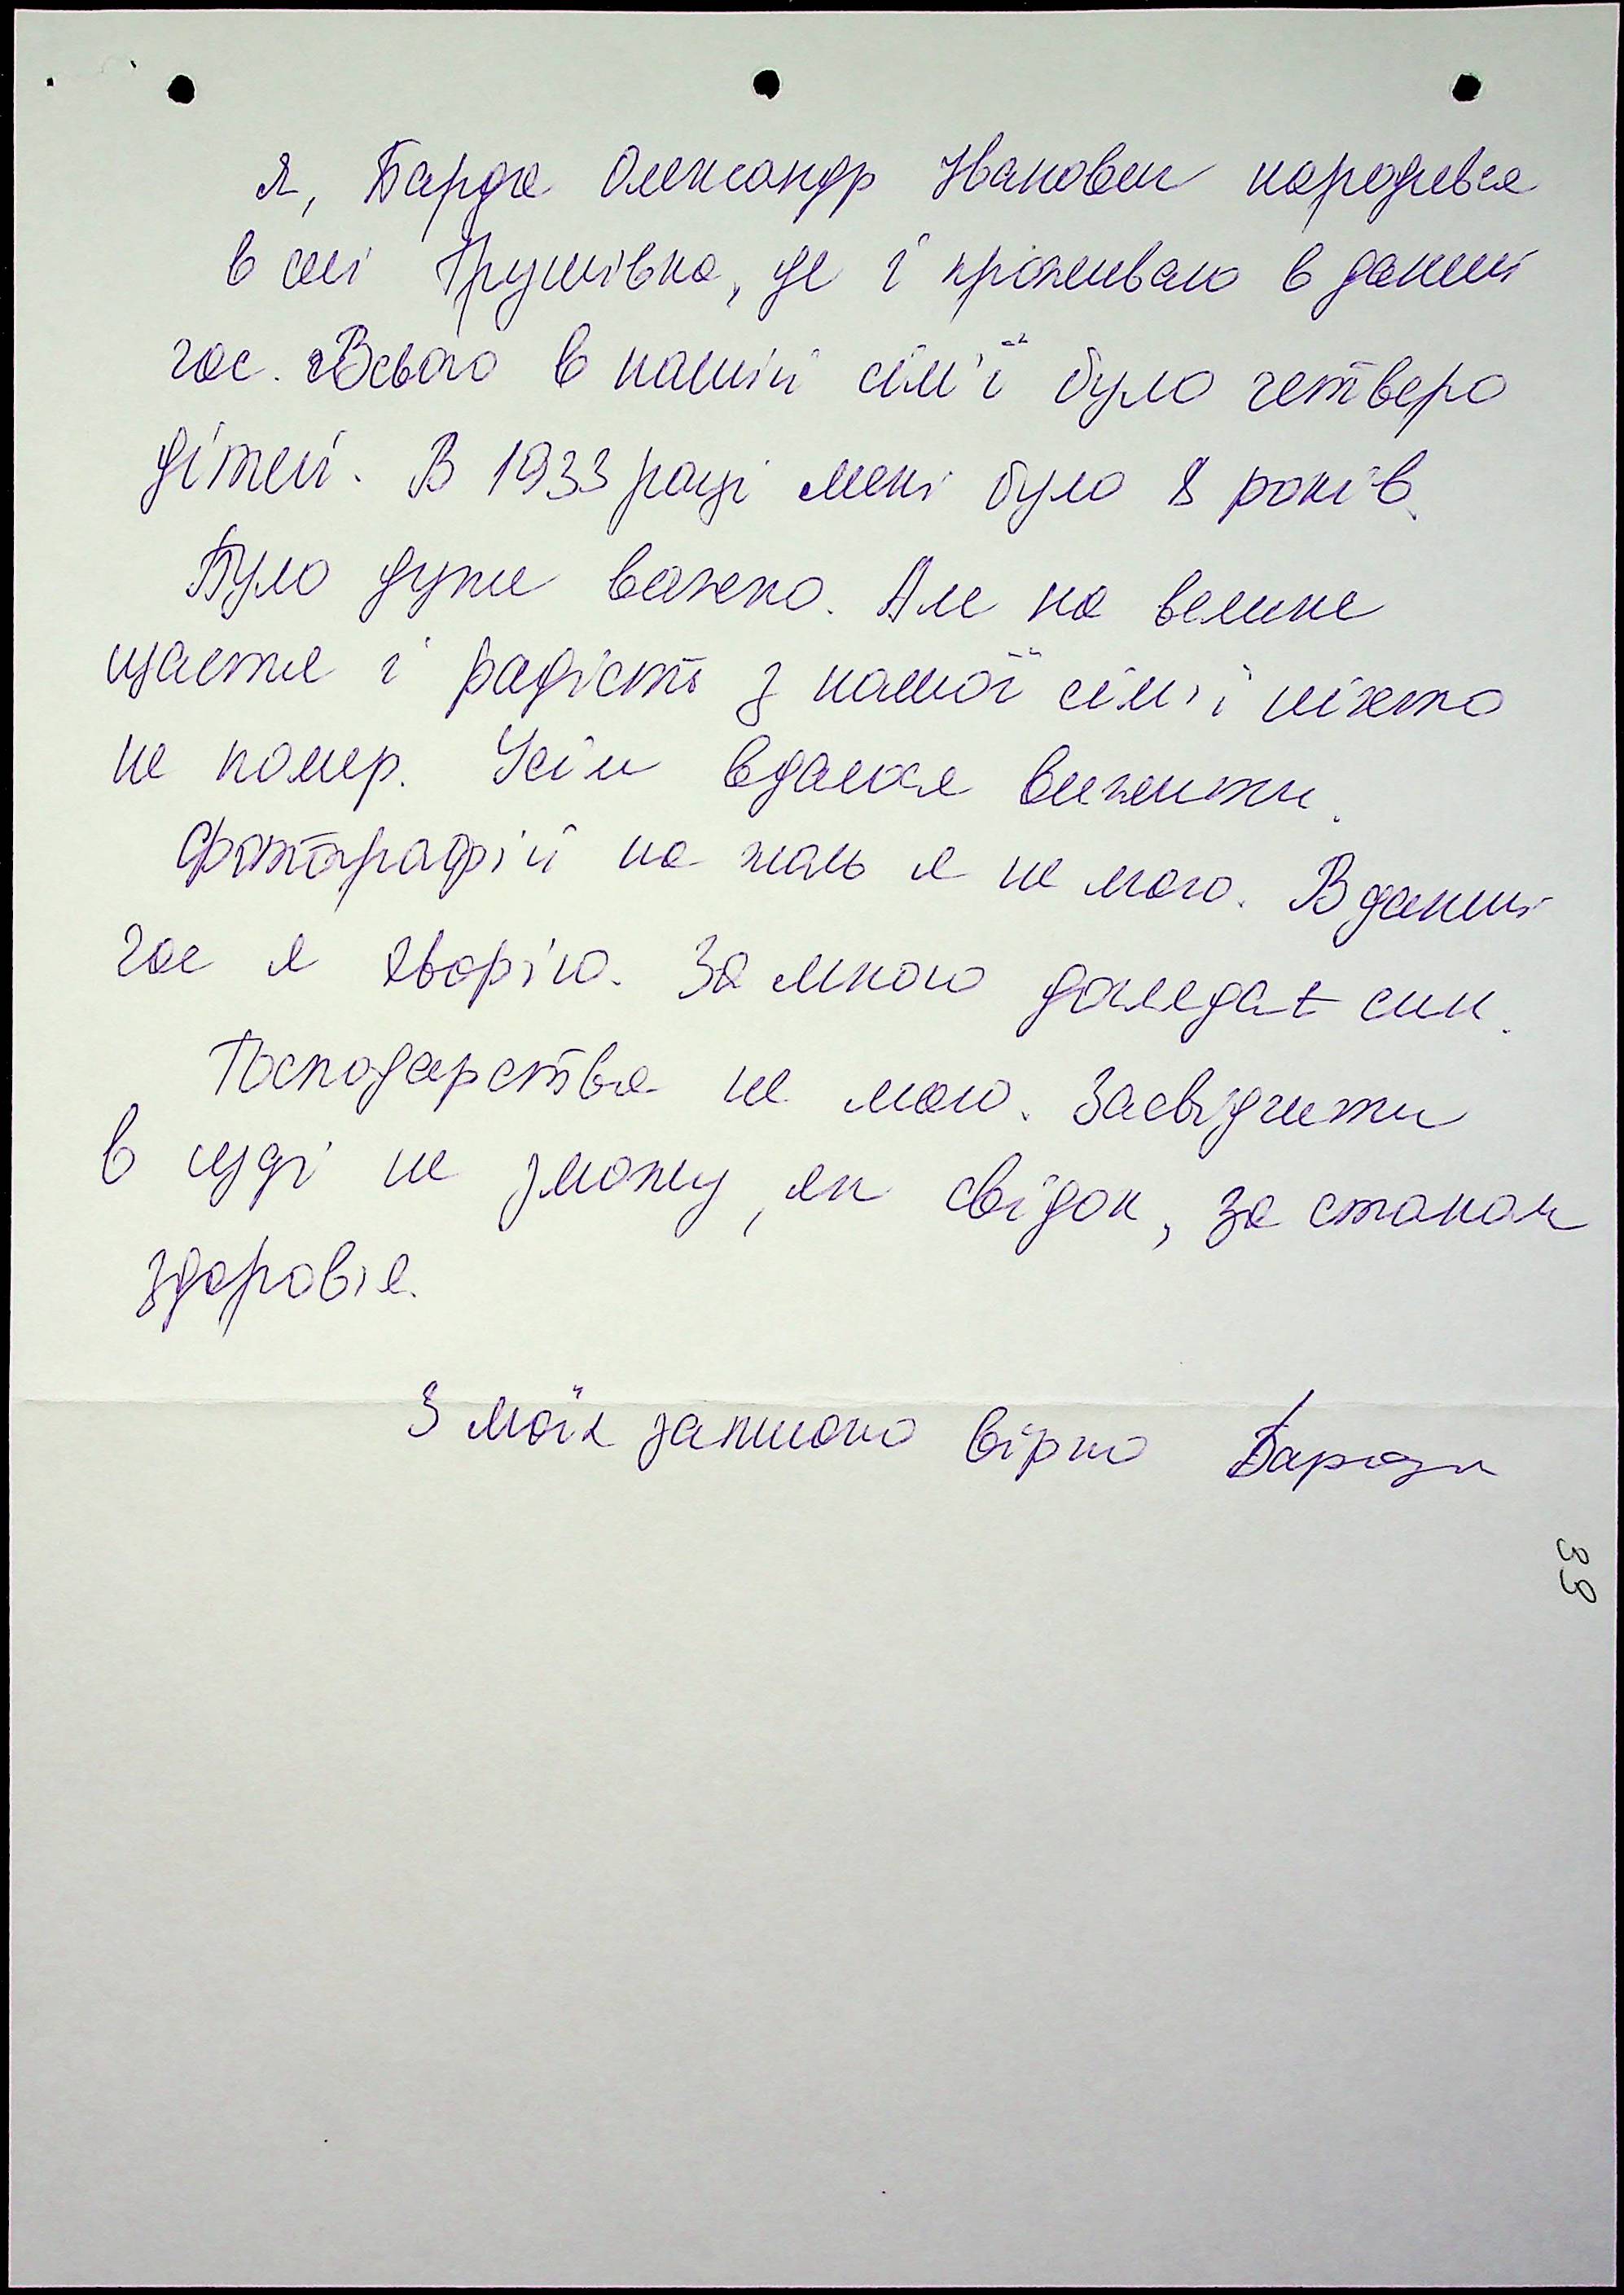 я, Барда Олександр Іванович народився
в селі Грушівка, де і проживаю в даний
час. Всього в нашій сім'ї було четверо
дітей. В 1933 році мені було 8 років.
Було дуже важко. Але на велике
щастя і радість з нашої сім'ї ніхто
не помер. Усім вдалося вижити.
Фотографій на жаль я не маю. В даний
час я хворію. За мною доглядає син.
Господарства не маю. Засвідчити
в суді не зможу, як свідок, за станом
здоров'я.
З моїх записано вірно
39